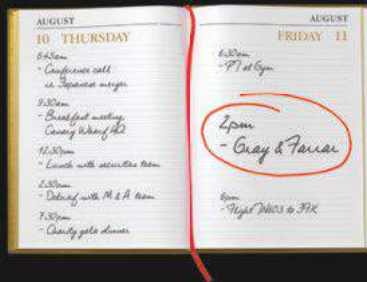 AUGUST
10 THURSDAY
6:45am
- Conference call
re Japanese merger
9.30am
- Breakfast meeting,
Canary Wharf HQ
12.30pm
- Lunch with securities team
2.30pm
- Debrief with M & A team
7.30pm
- Charity gala dinner
AUGUST
FRIDAY 11
6.30am
- PT at Gym
2pm
- Gray & Farrar
6pm
- Flight to JFK